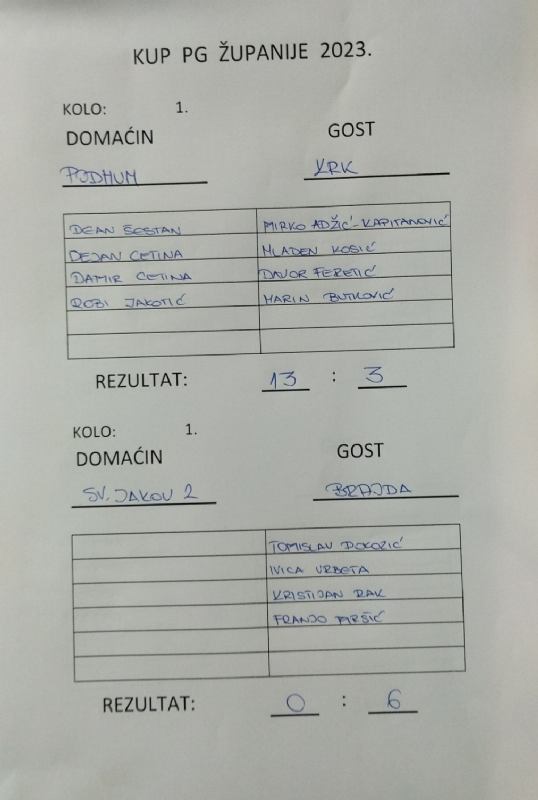 KUP PG ŽUPANIJE 2023.
KOLO: 1.
DOMAĆIN GOST
PODHUM KRK
DEAN ŠESTAN MIRKO ADŽIĆ-KAPITANOVIĆ
DEJAN CETINA MLADEN KOSIĆ
DAMIR CETINA DAVOR FERETIĆ
ROBI JAKOTIĆ MARIN BUTKOVIĆ
REZULTAT: 13 : 3
KOLO: 1.
DOMAĆIN GOST
SV. JAKOV 2 BRAJDA
TOMISLAV ĐOKOZIĆ
IVICA VRBETA
KRISTIJAN RAK
FRANJO PIRŠIĆ
REZULTAT: 0 : 6